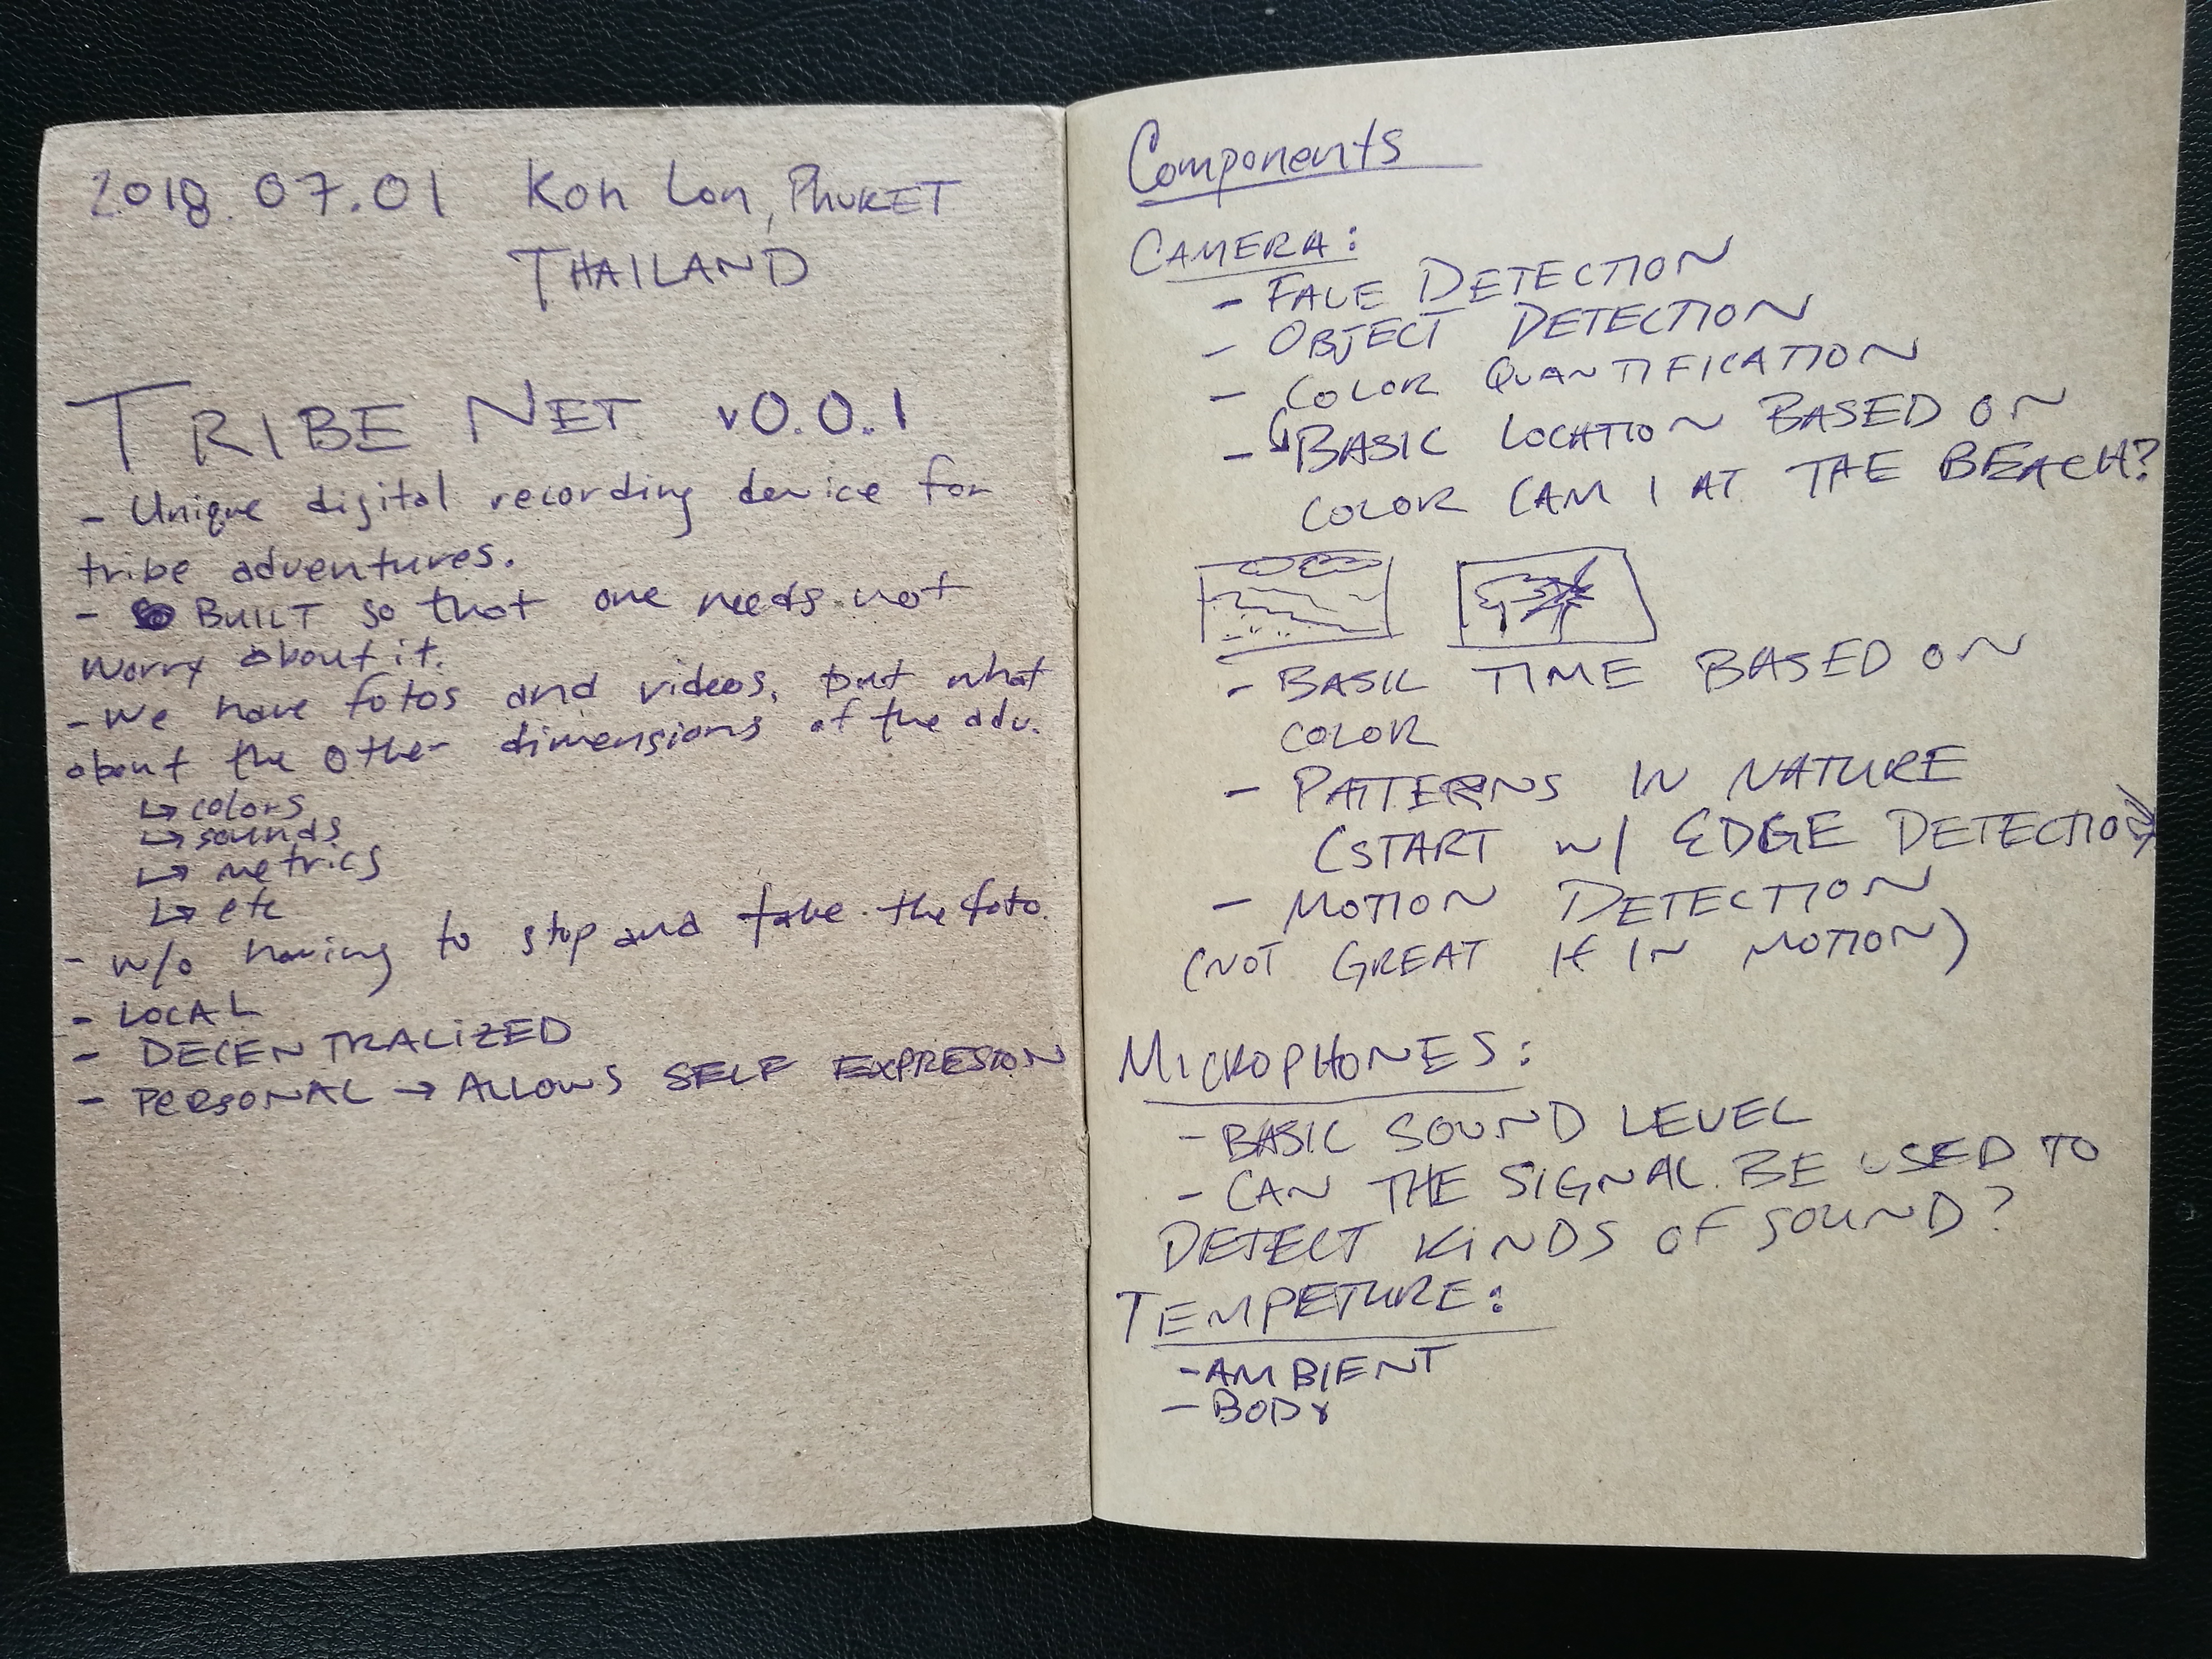 2018.07.01 Koh Lon, PHUKET
THAILAND
TRIBE NET v0.0.1
- Unique digital recording device for
tribe adventures.
- BUILT so that one needs not
worry about it.
- We have fotos and videos, but what
about the other dimensions of the adv.
↳ colors
↳ sounds
↳ metrics
↳ etc
- w/o having to stop and take the foto.
- LOCAL
- DECENTRALIZED
- PERSONAL → ALLOWS SELF EXPRESION
Components
CAMERA:
- FACE DETECTION
- OBJECT DETECTION
- COLOR QUANTIFICATION
- ↳ BASIC LOCATION BASED ON
COLOR (AM I AT THE BEACH?
- BASIC TIME BASED ON
COLOR
- PATTERNS IN NATURE
(START w/ EDGE DETECTION)
- MOTION DETECTION
(NOT GREAT IF IN MOTION)
MICROPHONES:
- BASIC SOUND LEVEL
- CAN THE SIGNAL BE USED TO
DETECT KINDS OF SOUND?
TEMPETURE:
- AMBIENT
- BODY